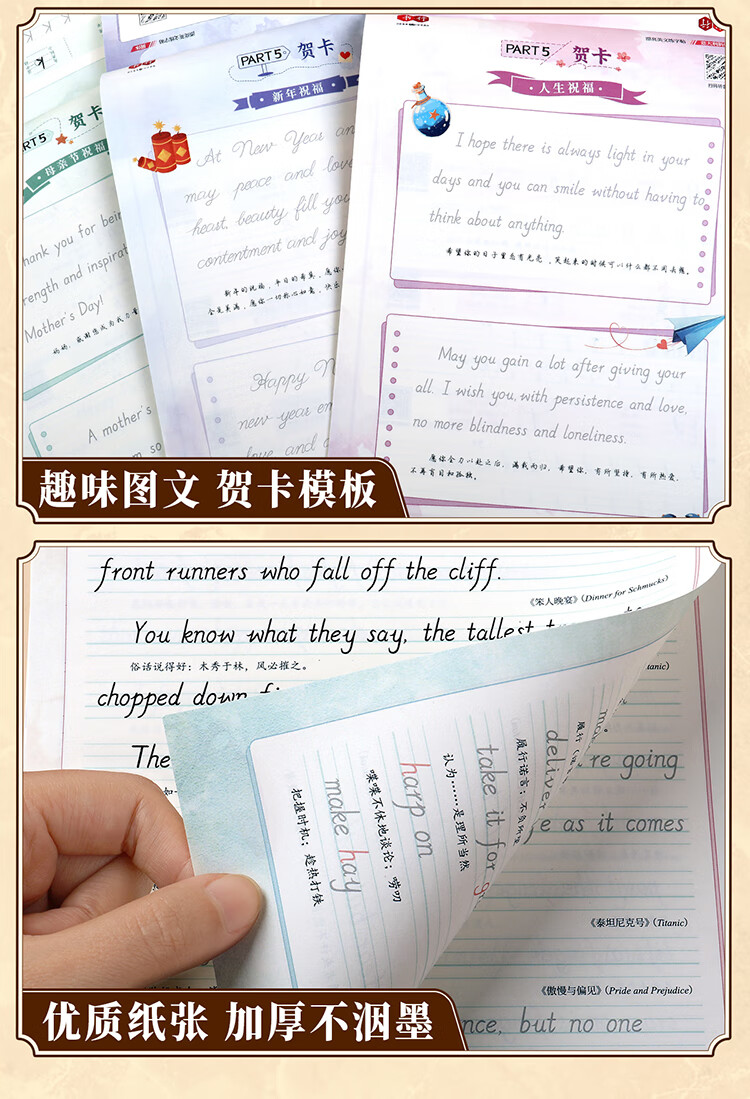 书行
PART 5 贺卡
人生祝福
I hope there is always light in your
days and you can smile without having to
think about anything.
希望你的日子里总有光亮，笑起来的时候可以什么都不用去想。
May you gain a lot after giving your
all. I wish you, with persistence and love,
no more blindness and loneliness.
愿你全力以赴之后，满载而归，希望你，有所坚持，有所热爱，
不再盲目和孤独。
PART 5 贺卡
新年祝福
At New Year an
may peace and love
heart, beauty fill you
contentment and joy
新年的祝福，平日的希冀，愿你
会是美满，愿你一切称心如意，快乐
Happy N
new year en
love and
RT 5 贺卡
母亲节祝福
hank you for bein
rength and inspirat
Mother's Day!
妈妈，感谢您成为我力量
A mother's
m so
趣味图文 贺卡模板
front runners who fall off the cliff.
《笨人晚宴》(Dinner for Schmucks)
You know what they say, the tallest
俗话说得好：木秀于林，风必摧之。
tanic)
chopped down
The
re going
e as it comes
《泰坦尼克号》(Titanic)
《傲慢与偏见》(Pride and Prejudice)
nce, but no one
deliver
履行诺言；不负所望
take it for
认为……是理所当然
harp on
喋喋不休地谈论；唠叨
make hay
把握时机；趁热打铁
优质纸张 加厚不洇墨